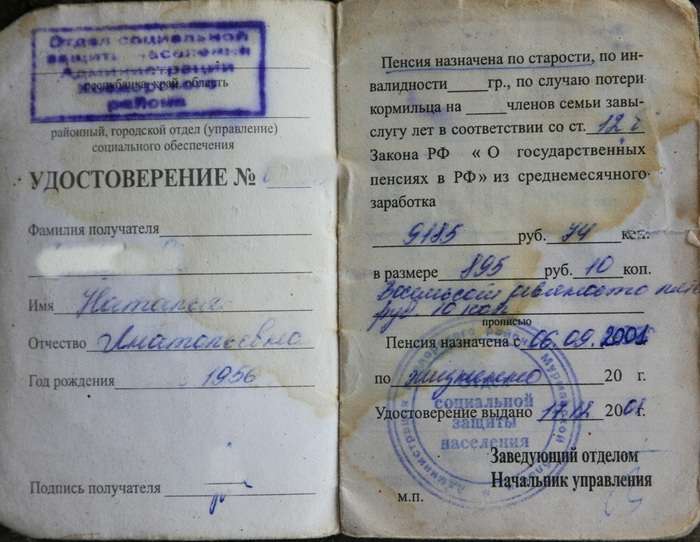 Отдел социальной
защиты населения
Администрации
района
республика, край, область
районный, городской отдел (управление)
социального обеспечения
УДОСТОВЕРЕНИЕ №
Фамилия получателя
Имя Наталья
Отчество Анатольевна
Год рождения 1956
Подпись получателя
Пенсия назначена по старости, по ин-
валидности гр., по случаю потери
кормильца на членов семьи завы-
слугу лет в соответствии со ст. 12
Закона РФ « О государственных
пенсиях в РФ» из среднемесячного
заработка
9185 руб. 74 коп.
в размере 895 руб. 10 коп.
Восемьсот девяносто пять
руб 10 коп
прописью
Пенсия назначена с 06.09.2001
по жизненно 20 г.
Удостоверение выдано 17.12 2001г.
социальной
защиты
населения
Заведующий отделом
Начальник управления
м.п.